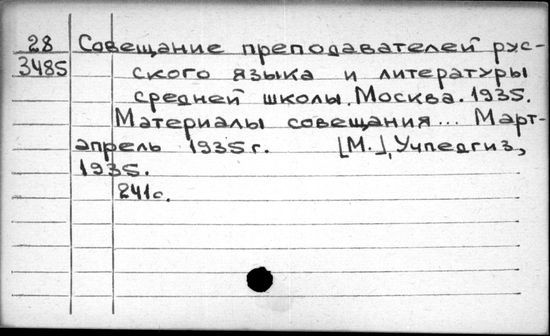 28 Совещание преподавателей рус-
3485 ского языка и литературы
средней школы. Москва. 1935.
Материалы совещания... Март-
апрель 1935 г. [М.], Учпедгиз,
1935.
241с.